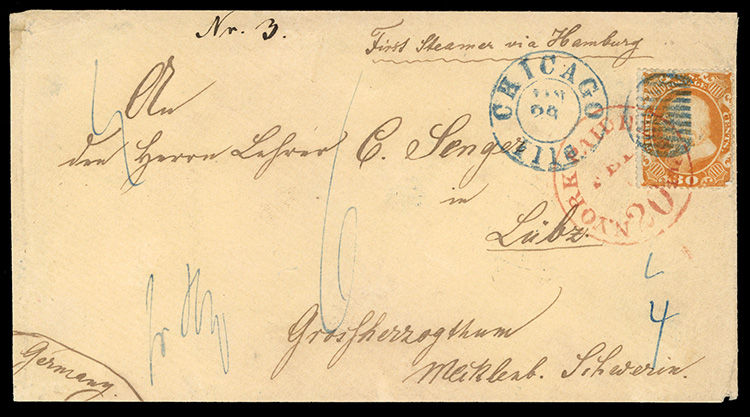 Nr. 3.
First Steamer via Hamburg
An
den Herrn Lehrer C. Senger
in
Lübz.
Grossherzogthum
Mecklenb. Schwerin.
Germany.
CHICAGO
Ills
N.YORK PAID
FEB
20
30
CENTS
6
4